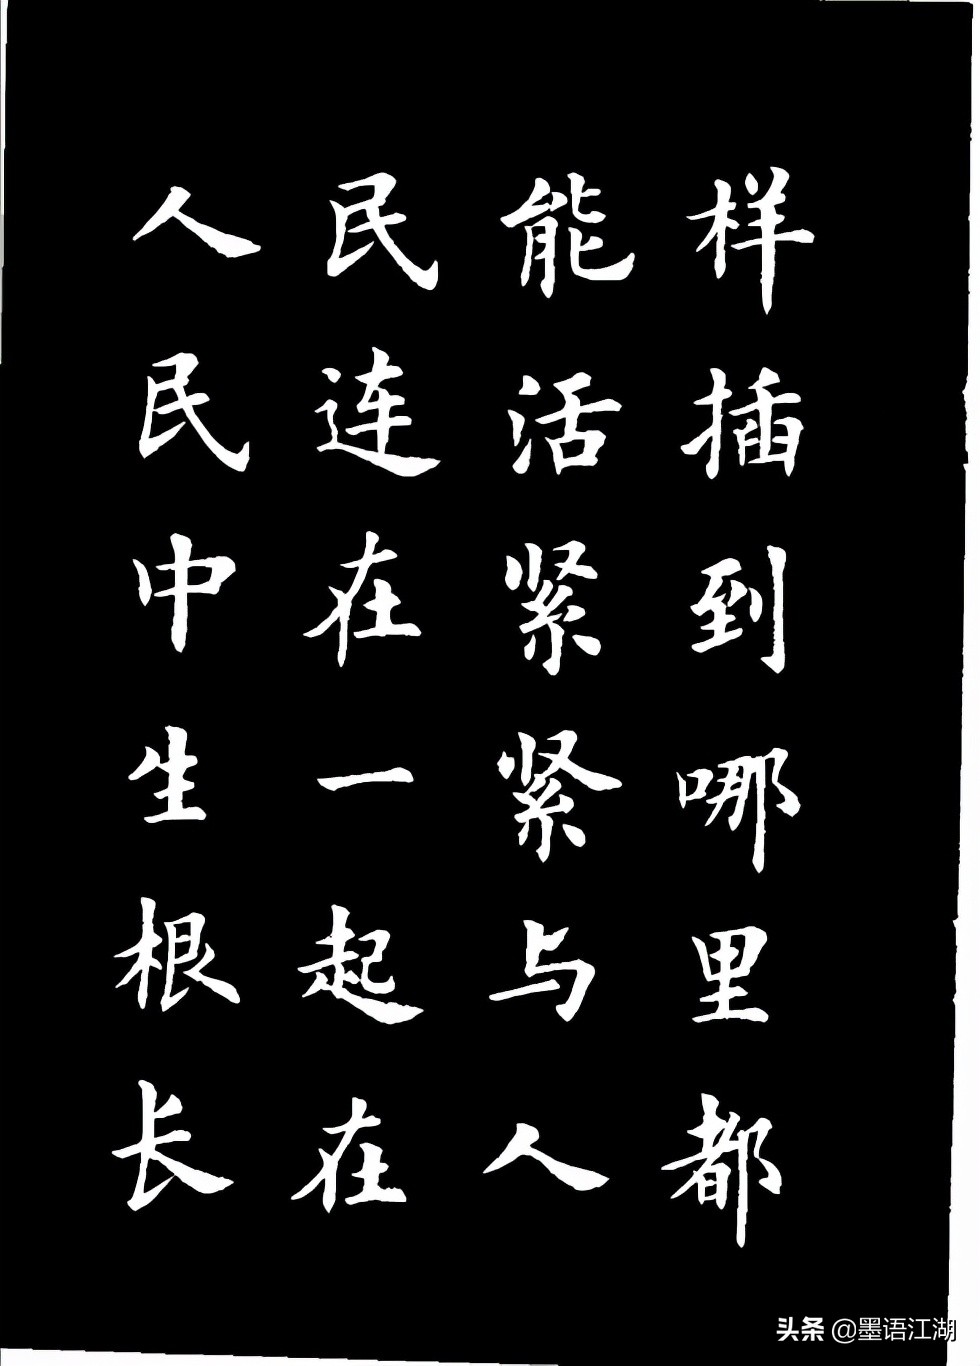 样插到哪里都
能活紧紧与人
民连在一起在
人民中生根长
头条 @墨语江湖